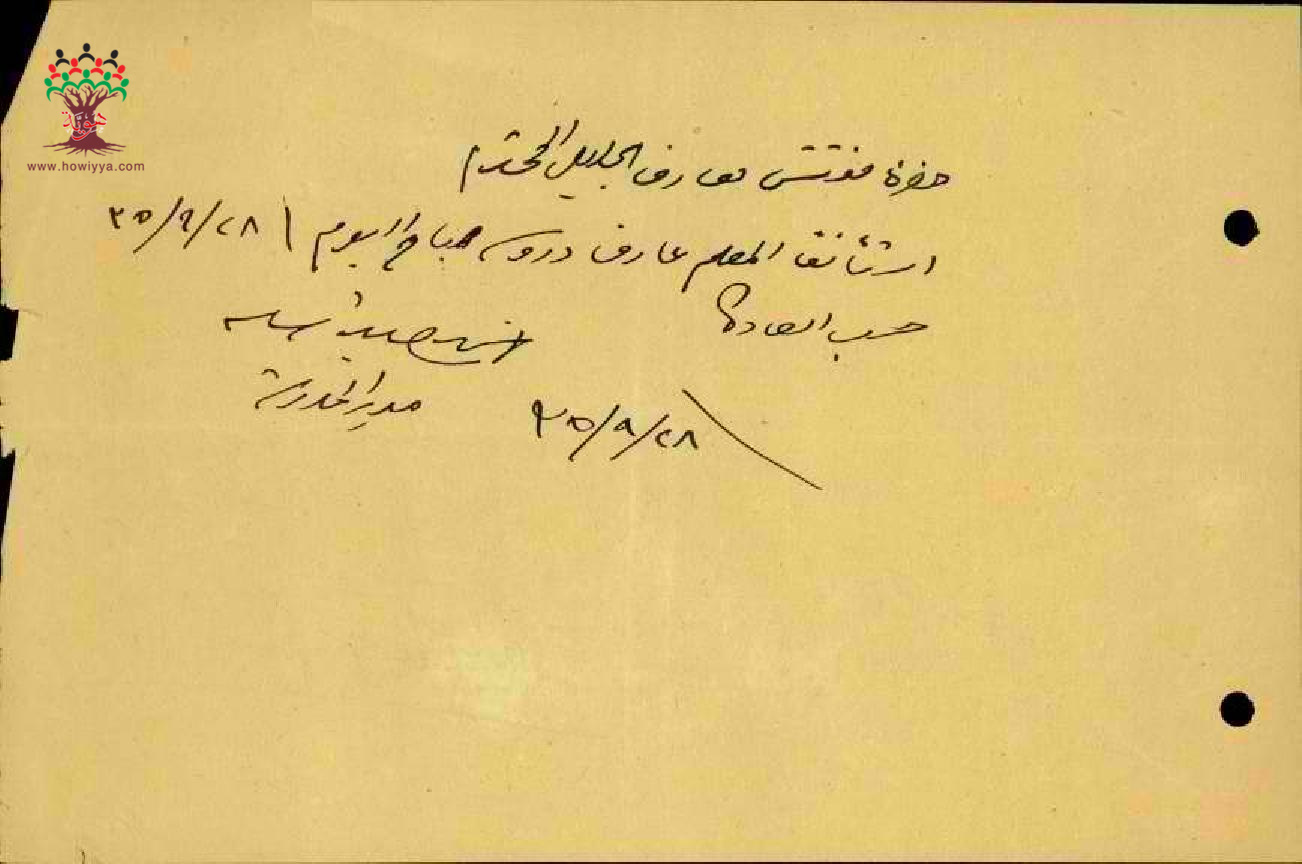 هوية
www.howiyya.com
حضرة مفتش معارف الجليل المحترم
استأنف المعلم عارف دروسه صباح اليوم ٢٨/٩/٣٥
حسب العادة
مدير المدرسة
٢٨/٩/٣٥